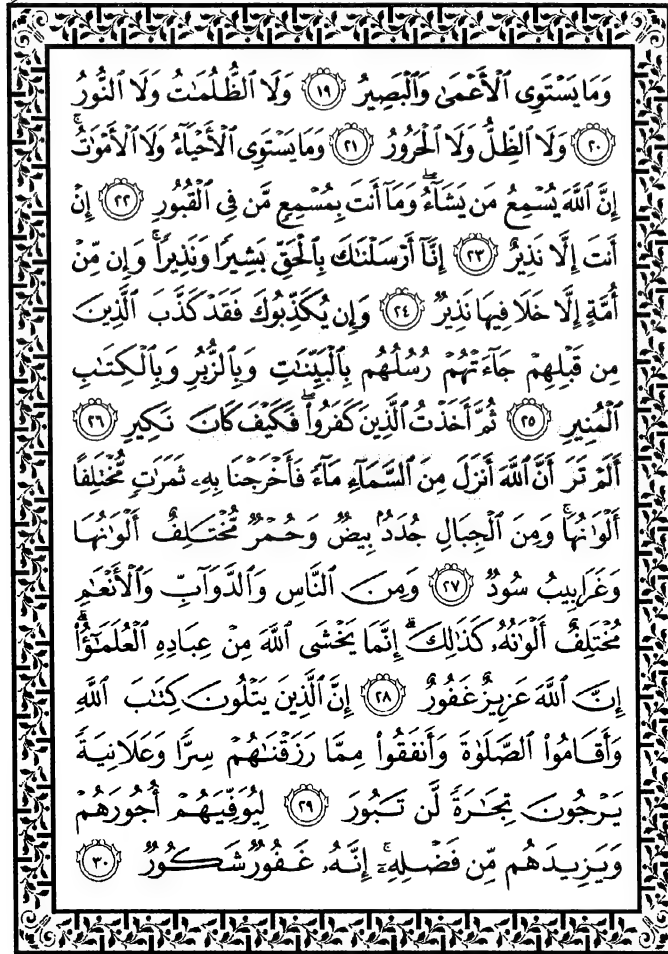 وَمَا يَسْتَوِى ٱلْأَعْمَىٰ وَٱلْبَصِيرُ ١٩ وَلَا ٱلظُّلُمَٰتُ وَلَا ٱلنُّورُ
٢٠ وَلَا ٱلظِّلُّ وَلَا ٱلْحَرُورُ ٢١ وَمَا يَسْتَوِى ٱلْأَحْيَآءُ وَلَا ٱلْأَمْوَٰتُۚ
إِنَّ ٱللَّهَ يُسْمِعُ مَن يَشَآءُۖ وَمَآ أَنتَ بِمُسْمِعٍ مَّن فِى ٱلْقُبُورِ ٢٢ إِنْ
أَنتَ إِلَّا نَذِيرٌ ٢٣ إِنَّآ أَرْسَلْنَٰكَ بِٱلْحَقِّ بَشِيرًا وَنَذِيرًاۚ وَإِن مِّنْ
أُمَّةٍ إِلَّا خَلَا فِيهَا نَذِيرٌ ٢٤ وَإِن يُكَذِّبُوكَ فَقَدْ كَذَّبَ ٱلَّذِينَ
مِن قَبْلِهِمْ جَآءَتْهُمْ رُسُلُهُم بِٱلْبَيِّنَٰتِ وَبِٱلزُّبُرِ وَبِٱلْكِتَٰبِ
ٱلْمُنِيرِ ٢٥ ثُمَّ أَخَذْتُ ٱلَّذِينَ كَفَرُوا۟ۖ فَكَيْفَ كَانَ نَكِيرِ ٢٦
أَلَمْ تَرَ أَنَّ ٱللَّهَ أَنزَلَ مِنَ ٱلسَّمَآءِ مَآءً فَأَخْرَجْنَا بِهِۦ ثَمَرَٰتٍ مُّخْتَلِفًا
أَلْوَٰنُهَاۚ وَمِنَ ٱلْجِبَالِ جُدَدٌۢ بِيضٌ وَحُمْرٌ مُّخْتَلِفٌ أَلْوَٰنُهَا
وَغَرَابِيبُ سُودٌ ٢٧ وَمِنَ ٱلنَّاسِ وَٱلدَّوَآبِّ وَٱلْأَنْعَٰمِ
مُخْتَلِفٌ أَلْوَٰنُهُۥ كَذَٰلِكَۗ إِنَّمَا يَخْشَى ٱللَّهَ مِنْ عِبَادِهِ ٱلْعُلَمَٰٓؤُا۟ۗ
إِنَّ ٱللَّهَ عَزِيزٌ غَفُورٌ ٢٨ إِنَّ ٱلَّذِينَ يَتْلُونَ كِتَٰبَ ٱللَّهِ
وَأَقَامُوا۟ ٱلصَّلَوٰةَ وَأَنفَقُوا۟ مِمَّا رَزَقْنَٰهُمْ سِرًّا وَعَلَانِيَةً
يَرْجُونَ تِجَٰرَةً لَّن تَبُورَ ٢٩ لِيُوَفِّيَهُمْ أُجُورَهُمْ
وَيَزِيدَهُم مِّن فَضْلِهِۦٓۚ إِنَّهُۥ غَفُورٌ شَكُورٌ ٣٠